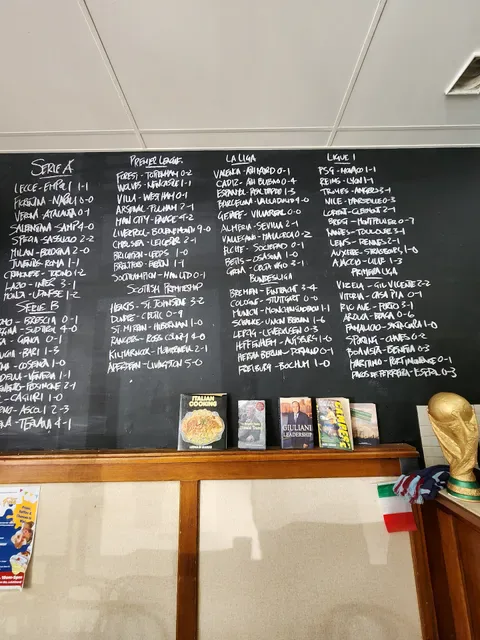 SERIE A
LECCE - EMPOLI 1-1
FIORENTINA - NAPOLI 0-0
VERONA - ATALANTA 0-1
SALERNITANA - SAMP 4-0
SPEZIA - SASSUOLO 2-2
MILAN - BOLOGNA 2-0
JUVENTUS - ROMA 1-1
CREMONESE - TORINO 1-2
LAZIO - INTER 3-1
MONZA - UDINESE 1-2
SERIE B
BRESCIA 0-1
SUDTIROL 4-0
GENOA 0-1
BARI 1-3
COSENZA 1-0
VENEZIA 1-0
FROSINONE 2-1
CAGLIARI 1-0
ASCOLI 2-3
TERNANA 4-1
PREMIER LEAGUE
FOREST - TOTTENHAM 0-2
WOLVES - NEWCASTLE 1-1
VILLA - WEST HAM 0-1
ARSENAL - FULHAM 2-1
MAN CITY - PALACE 4-2
LIVERPOOL - BOURNEMOUTH 9-0
CHELSEA - LEICESTER 2-1
BRIGHTON - LEEDS 1-0
BRENTFORD - EVERTON 1-1
SOUTHAMPTON - MAN UTD 0-1
SCOTTISH PREMIERSHIP
HEARTS - ST. JOHNSTONE 3-2
DUNDEE - CELTIC 0-9
ST. MIRREN - HIBERNIAN 1-0
RANGERS - ROSS COUNTY 4-0
KILMARNOCK - MOTHERWELL 2-1
ABERDEEN - LIVINGSTON 5-0
LA LIGA
VALENCIA - ATL MADRID 0-1
CADIZ - ATH BILBAO 0-4
ESPANOL - REAL MADRID 1-3
BARCELONA - VALLADOLID 4-0
GETAFE - VILLARREAL 0-0
ALMERIA - SEVILLA 2-1
VALLECANO - MALLORCA 0-2
ELCHE - SOCIEDAD 0-1
BETIS - OSASUNA 1-0
GIRONA - CELTA VIGO 0-1
BUNDESLIGA
BREMEN - EINTRACHT 3-4
COLOGNE - STUTTGART 0-0
MUNICH - MONCHENGLADBACH 1-1
SCHALKE - UNION BERLIN 1-6
LEIPZIG - LEVERKUSEN 0-3
HOFFENHEIM - AUGSBURG 1-0
HERTHA BERLIN - DORTMUND 0-1
FREIBURG - BOCHUM 1-0
LIGUE 1
PSG - MONACO 1-1
REIMS - LYON 1-1
TROYES - ANGERS 3-1
NICE - MARSEILLE 0-3
LORIENT - CLERMONT 2-1
BREST - MONTPELLIER 0-7
NANTES - TOULOUSE 3-1
LENS - RENNES 2-1
AUXERRE - STRASBOURG 1-0
AJACCIO - LILLE 1-3
PRIMEIRA LIGA
VIZELA - GIL VICENTE 2-2
VITORIA - CASA PIA 0-1
RIO AVE - PORTO 3-1
AROUCA - BRAGA 0-6
FAMALICAO - SANTA CLARA 1-0
SPORTING - CHAVES 0-2
BOAVISTA - BENFICA 0-3
MARITIMO - PORTIMONENSE 0-1
PACOS DE FERREIRA - ESTORIL 0-3
ITALIAN
COOKING
GIULIANI
LEADERSHIP